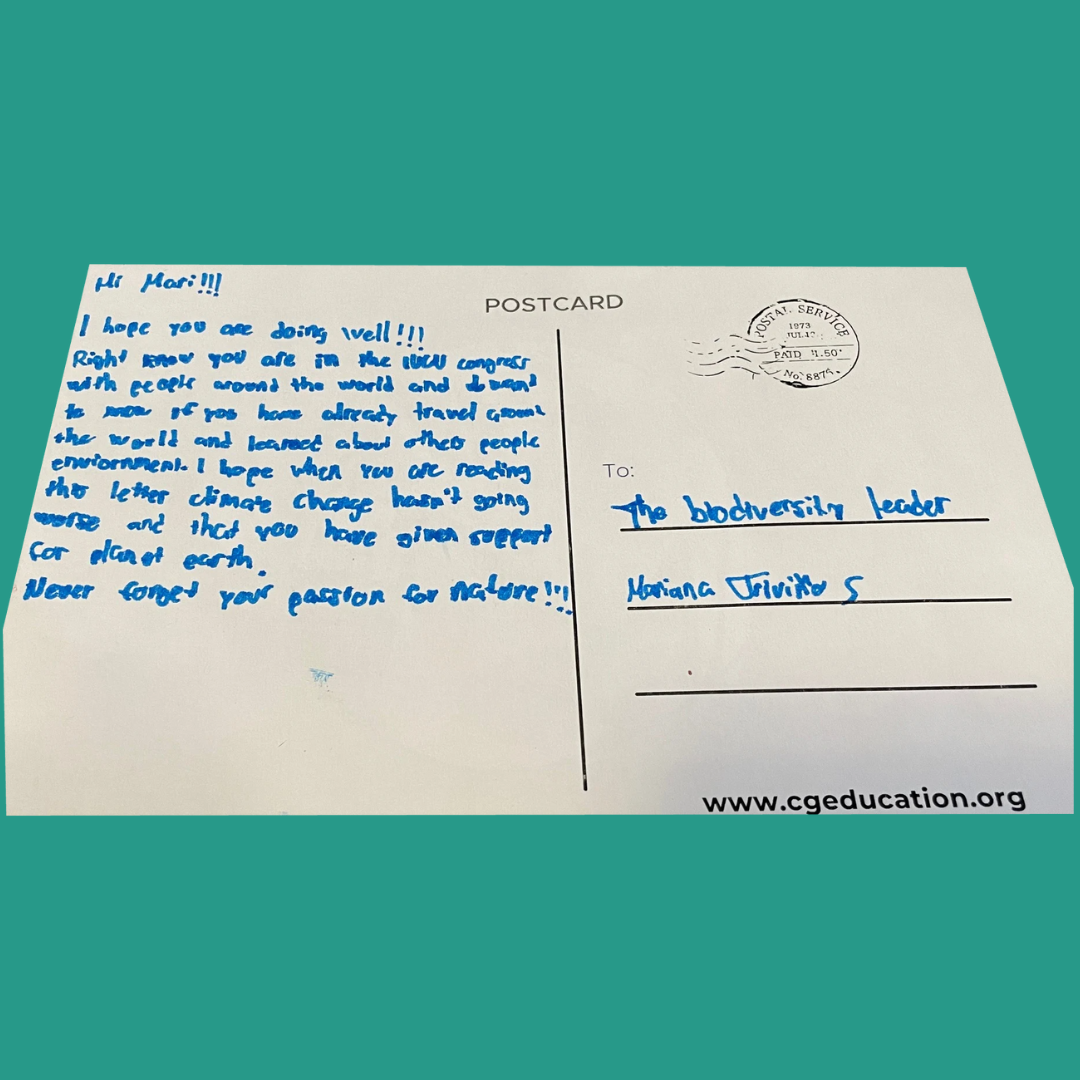 Hi Mari!!!
I hope you are doing well!!!
Right know you are in the IUCU congress
with people around the world and I want
to know if you have already travel around
the world and learned about others people
enviornment. I hope when you are reading
this letter climate change hasn't going
worse and that you have given support
for planet earth.
Never forget your passion for nature!!!
POSTCARD
POSTAL SERVICE
1973
JUL.12
PAID $1.50
No. 8874
To:
The biodiversity leader
Mariana Triviño S
www.cgeducation.org